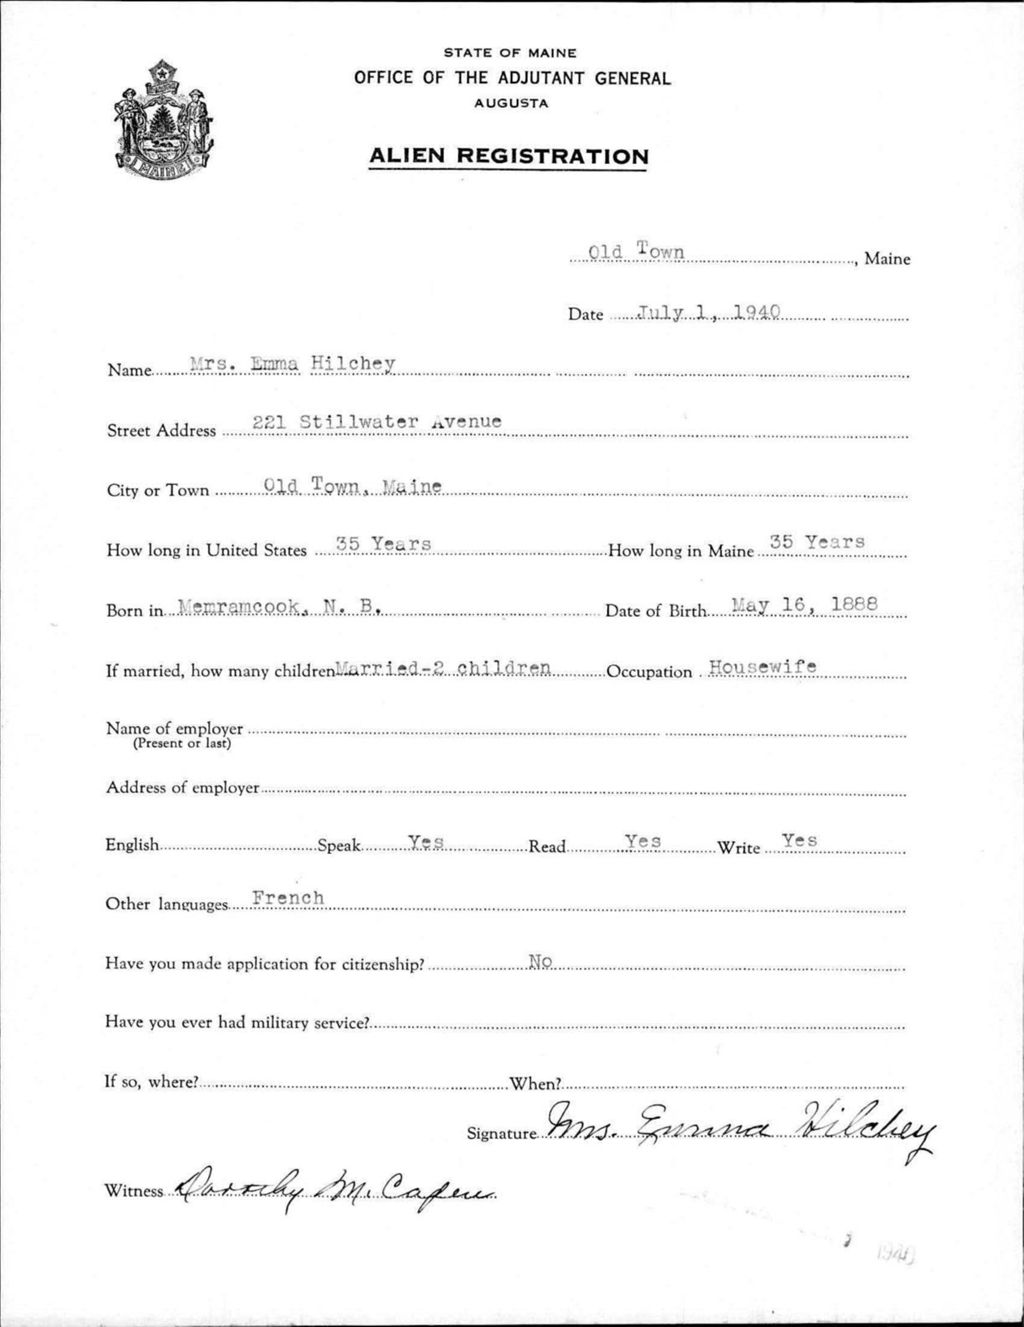 STATE OF MAINE
OFFICE OF THE ADJUTANT GENERAL
AUGUSTA
MAINE
ALIEN REGISTRATION
Old Town, Maine
Date July 1, 1940
Name Mrs. Emma Hilchey
Street Address 221 Stillwater Avenue
City or Town Old Town, Maine
How long in United States 35 Years How long in Maine 35 Years
Born in Memramcook, N. B. Date of Birth May 16, 1888
If married, how many children Married-2 children Occupation Housewife
Name of employer
(Present or last)
Address of employer
English Speak Yes Read Yes Write Yes
Other languages French
Have you made application for citizenship? No
Have you ever had military service?
If so, where? When?
Signature Mrs. Emma Hilchey
Witness Dorothy M. Capen
1940